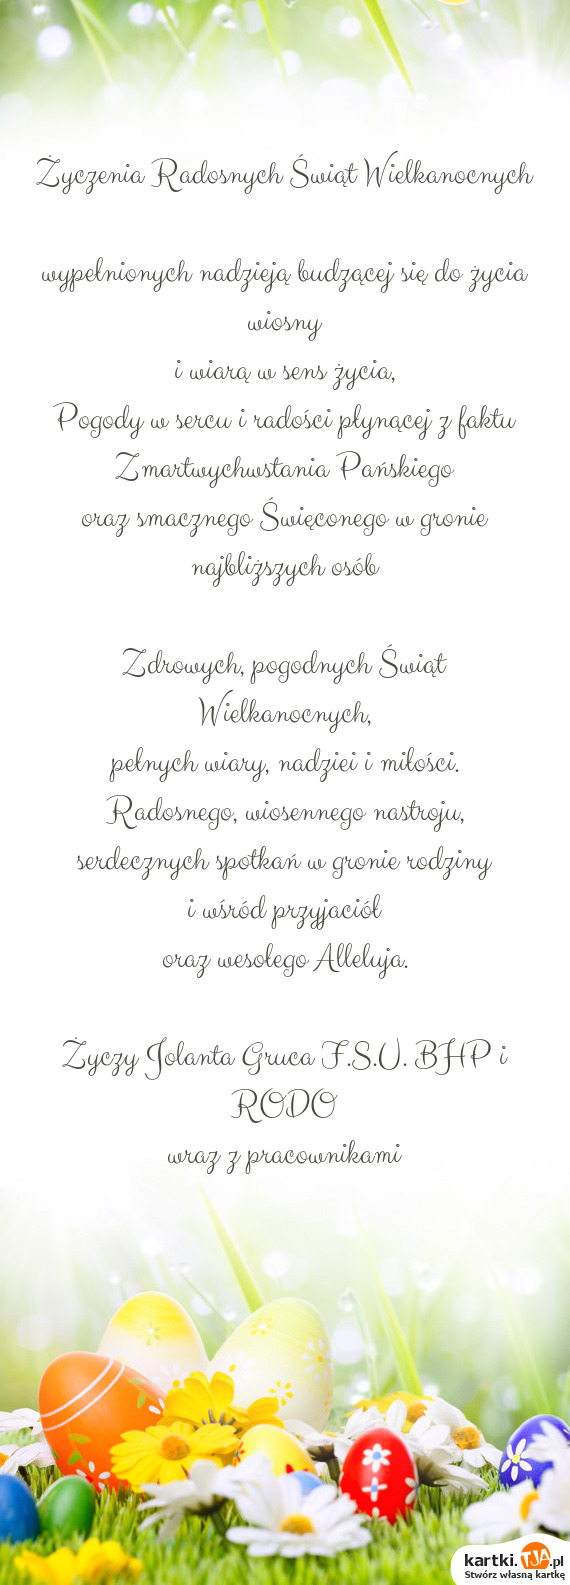 Życzenia Radosnych Świąt Wielkanocnych
wypełnionych nadzieją budzącej się do życia
wiosny
i wiarą w sens życia,
Pogody w sercu i radości płynącej z faktu
Zmartwychwstania Pańskiego
oraz smacznego Święconego w gronie
najbliższych osób
Zdrowych, pogodnych Świąt
Wielkanocnych,
pełnych wiary, nadziei i miłości.
Radosnego, wiosennego nastroju,
serdecznych spotkań w gronie rodziny
i wśród przyjaciół
oraz wesołego Alleluja.
Życzy Jolanta Gruca F.S.U. BHP i
RODO
wraz z pracownikami
kartki.TJA.pl
Stwórz własną kartkę